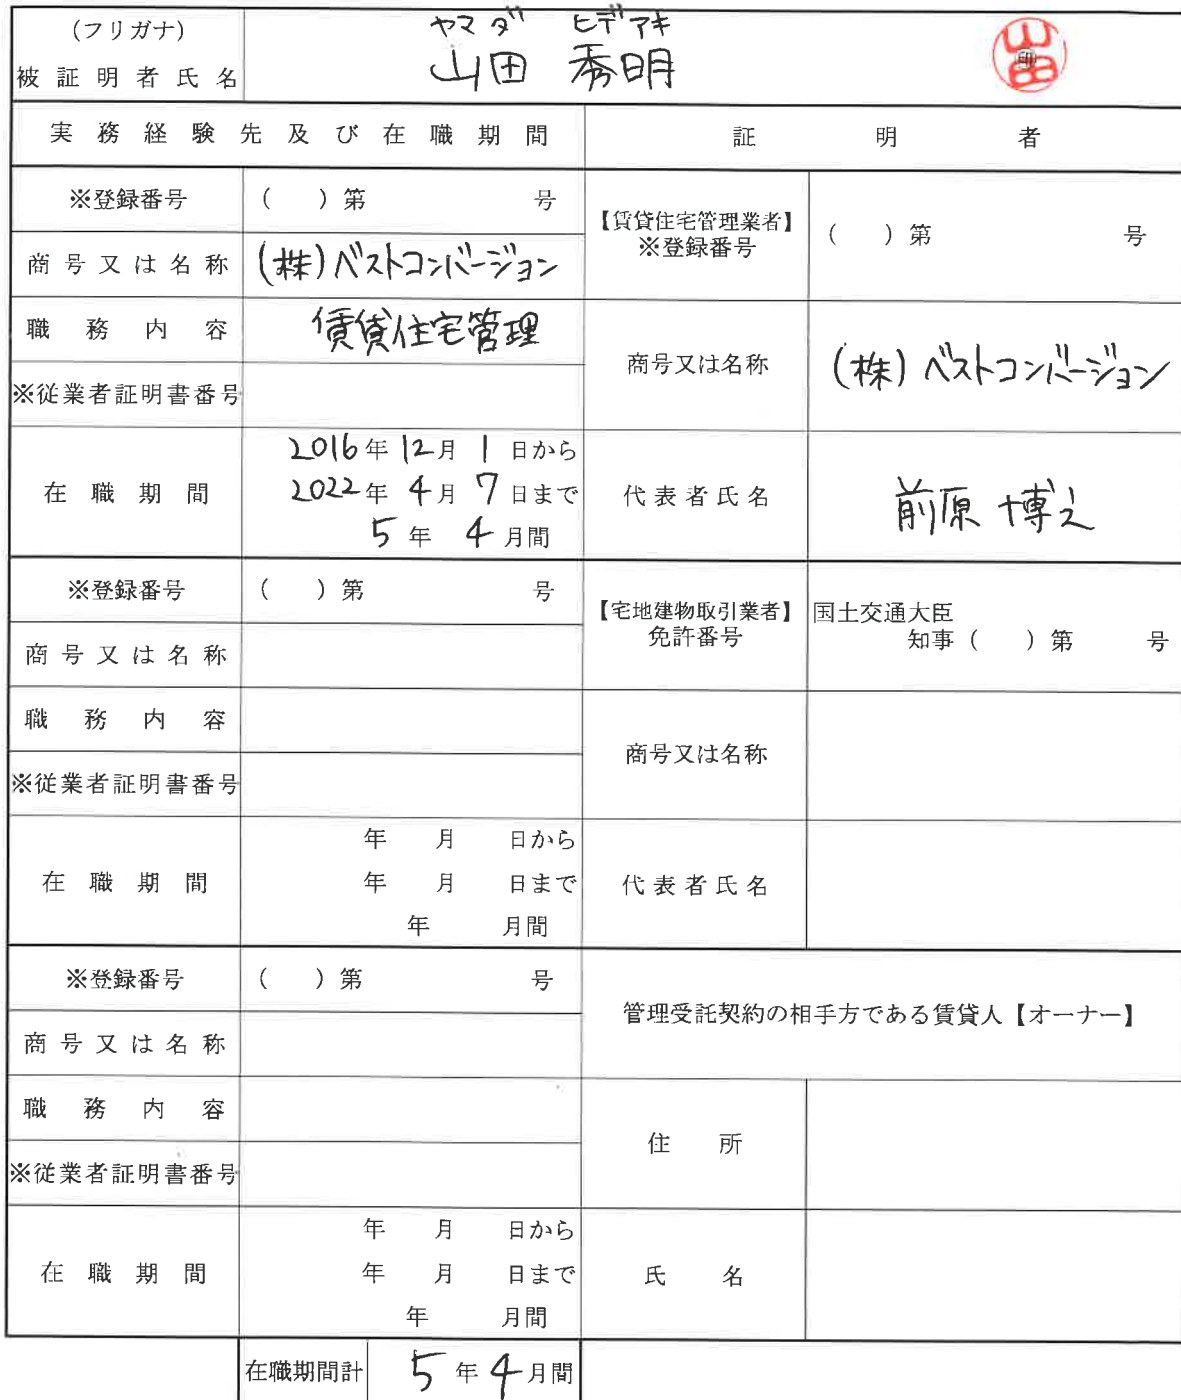 (フリガナ) ヤマダ ヒデアキ
被証明者氏名 山田 秀明 山田 印
実務経験先及び在職期間 証明者
※登録番号 ( )第 号
【賃貸住宅管理業者】
※登録番号 ( )第 号
商号又は名称 (株)ベストコンバージョン
職務内容 賃貸住宅管理
商号又は名称 (株)ベストコンバージョン
※従業者証明書番号
在職期間
2016年12月1日から
2022年4月7日まで
5年4月間
代表者氏名 前原 博之
※登録番号 ( )第 号
【宅地建物取引業者】
免許番号
国土交通大臣
知事( )第 号
商号又は名称
職務内容
商号又は名称
※従業者証明書番号
在職期間
年 月 日から
年 月 日まで
年 月間
代表者氏名
※登録番号 ( )第 号
管理受託契約の相手方である賃貸人【オーナー】
商号又は名称
職務内容
住所
※従業者証明書番号
在職期間
年 月 日から
年 月 日まで
年 月間
氏名
在職期間計 5年4月間